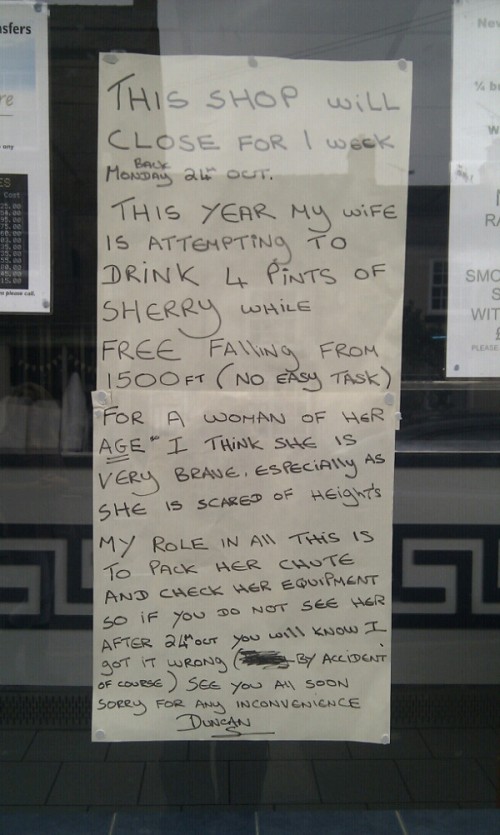 sfers
re
ny
ES
Cost
please call.
New
W
RA
SMO
S
WIT
£
PLEASE
THIS SHOP WILL
CLOSE FOR 1 WEEK
BACK
MONDAY 24TH OCT.
THIS YEAR MY WIFE
IS ATTEMPTING TO
DRINK 4 PINTS OF
SHERRY WHILE
FREE FALLING FROM
1500FT (NO EASY TASK)
FOR A WOMAN OF HER
AGE" I THINK SHE IS
VERY BRAVE. ESPECIALLY AS
SHE IS SCARED OF HEIGHTS
MY ROLE IN ALL THIS IS
TO PACK HER CHUTE
AND CHECK HER EQUIPMENT
SO IF YOU DO NOT SEE HER
AFTER 24TH OCT YOU WILL KNOW I
GOT IT WRONG ( BY ACCIDENT
OF COURSE) SEE YOU ALL SOON
SORRY FOR ANY INCONVENIENCE
DUNCAN